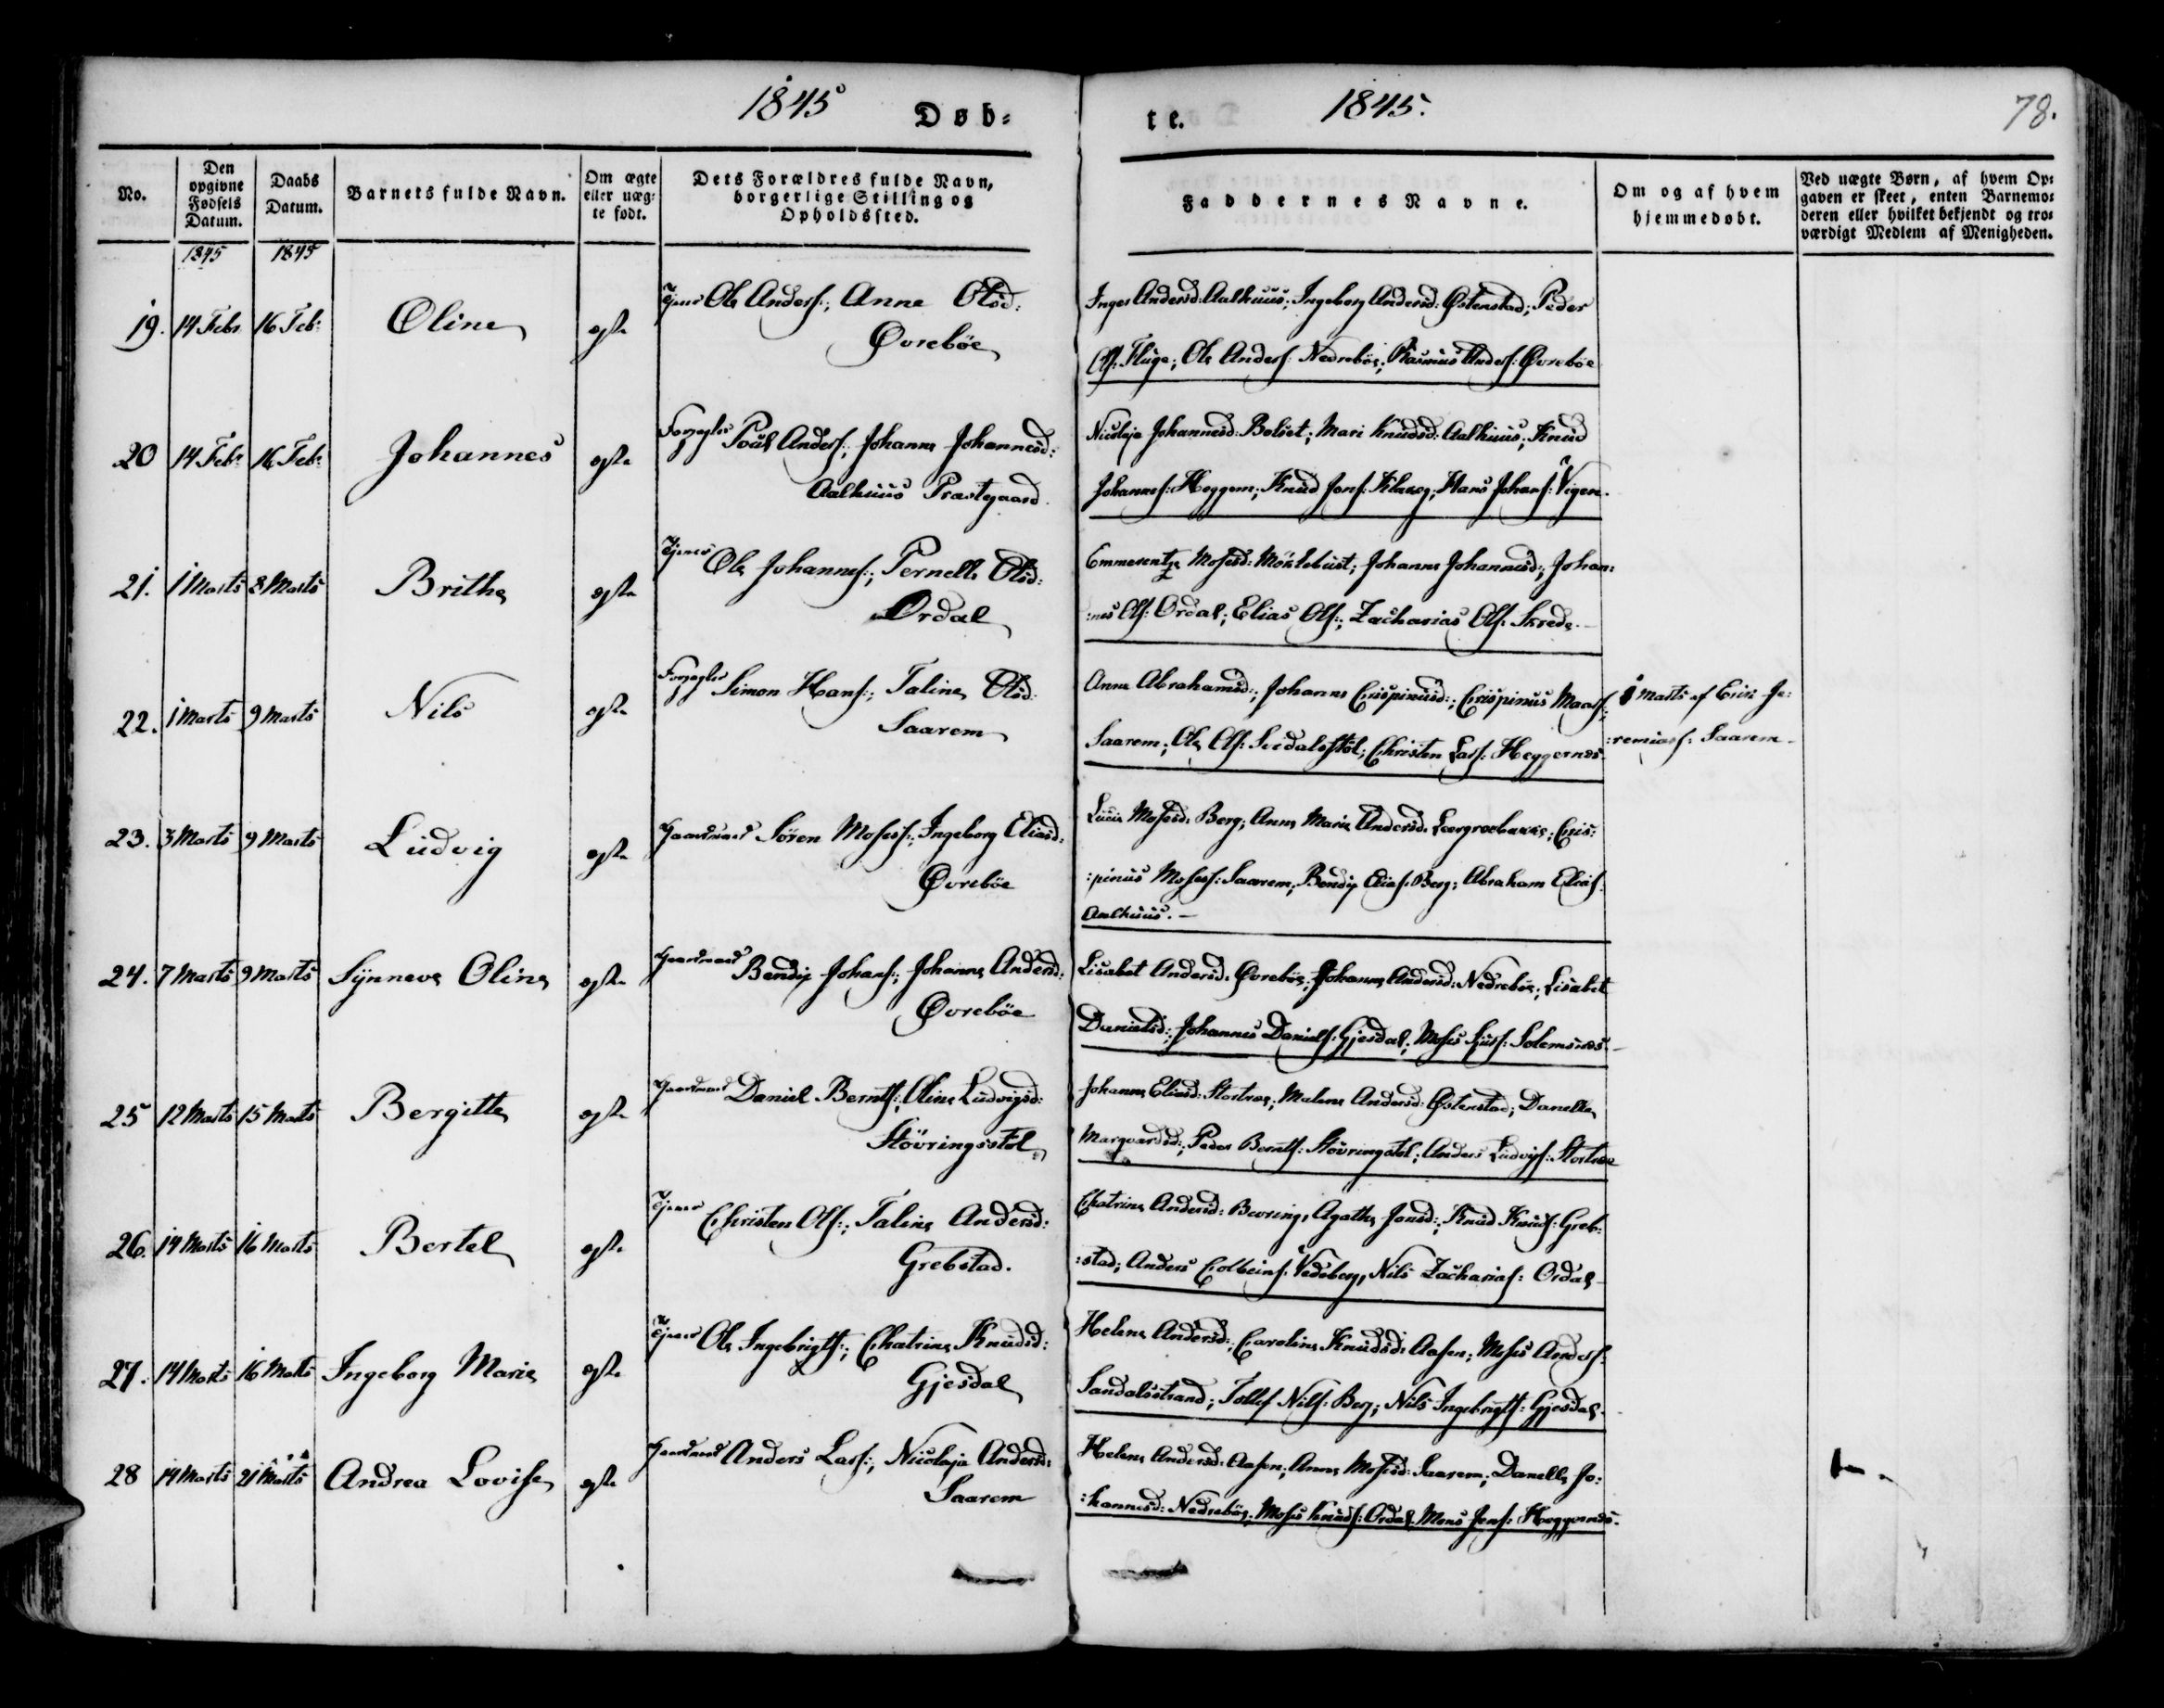 1845 Døb-
te. 1845. 78.
No. Den opgivne Fødsels Datum. Daabs Datum. Barnets fulde Navn. Om ægte eller uæg-te født. Dets Forældres fulde Navn, borgerlige Stilling og Opholdssted.
Faddernes Navne. Om og af hvem hjemmedøbt. Ved uægte Børn, af hvem Op-gaven er skeet, enten Barnemo-deren eller hvilket bekjendt og tro-værdigt Medlem af Menigheden.
1845 1845
19. 14 Febr 16 Feb: Oline egte Ole Anders:, Anne Olsd:
Øvrebøe
Inger Andersd: Aalhuus; Ingeborg Andersd: Østenstad; Peder
Ols: Fluge; Ole Anders: Nedrebøe; Rasmus Anders: Øvrebøe
20 14 Feb: 16 Feb: Johannes egte Poul Anders:, Johanne Johannesd:
Aalhuus Præstegaard.
Nicolaja Johannesd: Bolset; Mari Knudsd: Aalhuus; Knud
Johannes: Heggem; Knud Jons: Klakeg; Hans Johans: Vigen.
21. 1 Marts 8 Marts Brithe egte Ole Johannes:, Pernelle Olsd:
Ordal
Emmerentze Mosesd: Møklebust; Johanne Johannesd:, Johan:
:nes Ols: Ordal; Elias Ols:, Zacharias Ols: Skrede.
22. 1 Marts 9 Marts Nils egte Simon Hans:, Taline Olsd:
Saarem
Anne Abrahamsd:, Johanne Crispinusd:, Crispinus Mons:,
Saarem; Ole Ols: Svidalsstøl; Christen Lars: Heggernæs
1 Marts af Erik Je:
:remiass: Saarem
23. 3 Marts 9 Marts Ludvig egte Gaardmand Søren Moses:, Ingeborg Eliasd:
Øvrebøe
Lucie Mosesd: Berg; Anne Marie Andersd: Cris:
:pinus Moses: Saarem; Bendix Elias: Berg; Abraham Elias:
Aalhuus.
24. 7 Marts 9 Marts Synneve Oline egte Gaardmand Bendix Johans:, Johanne Andersd:
Øvrebøe
Lisabet Andersd: Øvrebøe; Johanne Andersd: Nedrebøe; Lisabet
Danielsd:, Johannes Daniels: Gjesdal; Moses Solemsnæs.
25 12 Marts 15 Marts Bergitte egte Gaardmand Daniel Bernts:, Oline Ludvigsd:
Støvringsstøl
Johanne Eliasd: Stortræe; Malene Andersd: Østenstad; Danelle
Marqvardsd:, Peder Bernts: Støvringstøl; Anders Ludvigs: Stortræe
26. 14 Marts 16 Marts Bertel egte Christen Ols:, Taline Andersd:
Grebstad.
Chatrine Andersd: Agathe Jonsd:, Knud Knuds: Greb:
:stad; Anders Colbeins: Vedeberg, Nils Zacharias: Ordal
27. 14 Marts 16 Marts Ingeborg Marie egte Ole Ingebrigts:, Chatrine Knudsd:
Gjesdal
Helene Andersd:, Caroline Knudsd: Aasen; Moses Anders:
Sandalsstrand; Tollef Nils: Berg; Nils Ingebrigts: Gjesdal.
28 14 Marts 21 Marts Andrea Lovise egte Gaardmand Anders Lars:, Nicolaja Andersd:
Saarem
Helene Andersd: Aasen; Anne Mosesd: Saarem; Danelle Jo:
:hannesd: Nedrebøe; Moses Knuds: Ordal; Mons Jens: Heggernæs.